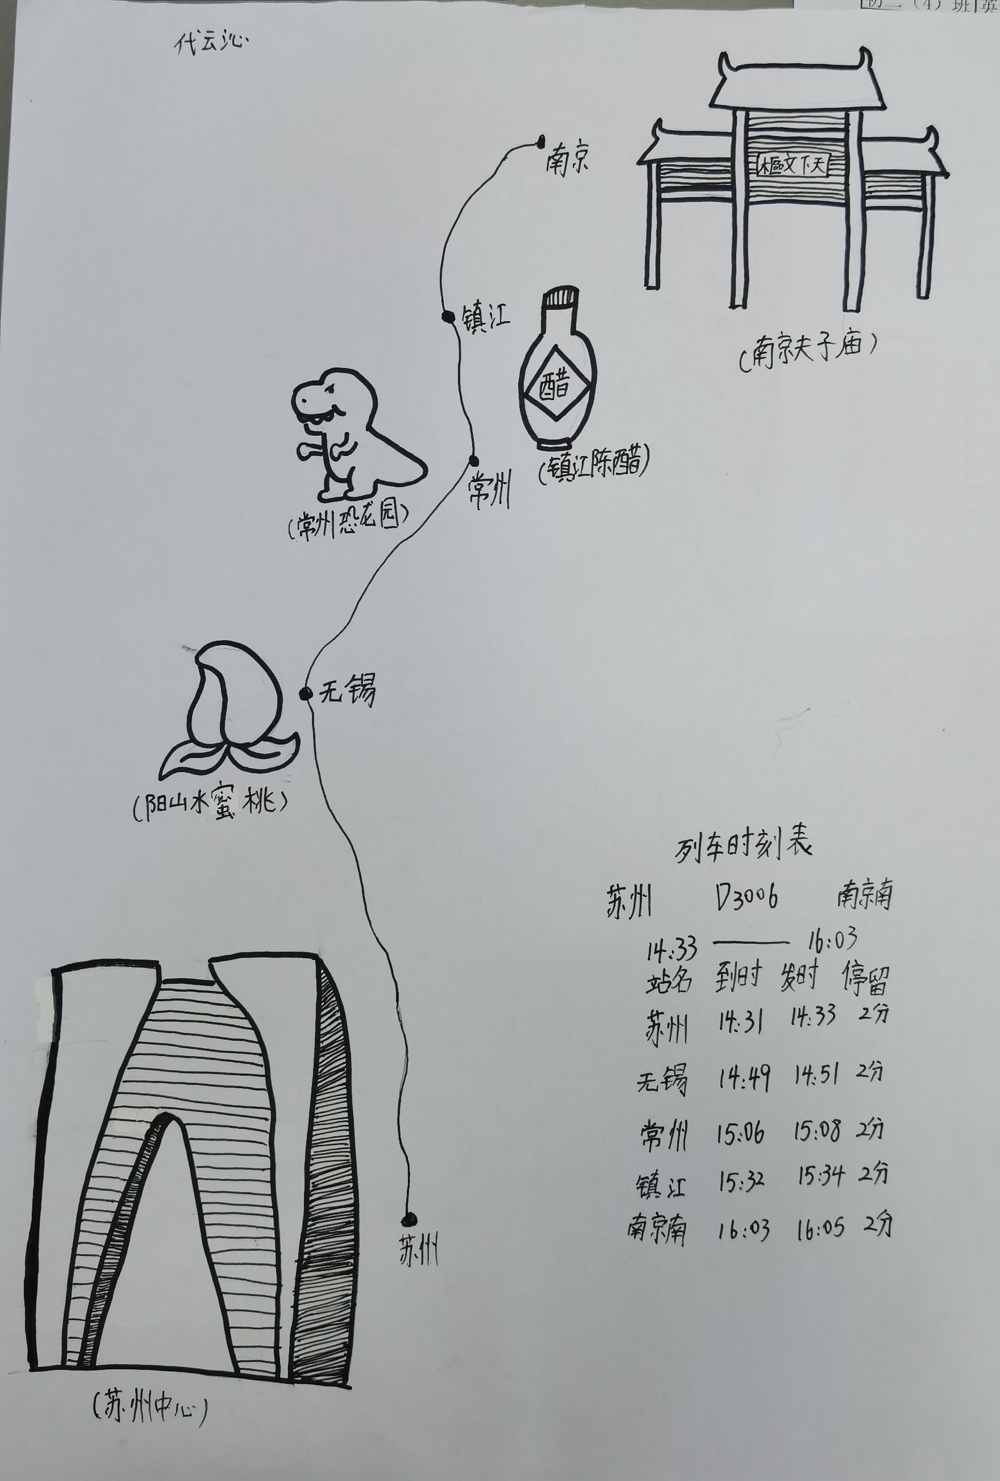 初二（4）班 英
代云沁
南京
天下文樞
(南京夫子庙)
镇江
醋
(镇江陈醋)
常州
(常州恐龙园)
无锡
(阳山水蜜桃)
列车时刻表
苏州 D3006 南京南
14:33 —— 16:03
站名 到时 发时 停留
苏州 14:31 14:33 2分
无锡 14:49 14:51 2分
常州 15:06 15:08 2分
镇江 15:32 15:34 2分
南京南 16:03 16:05 2分
苏州
(苏州中心)